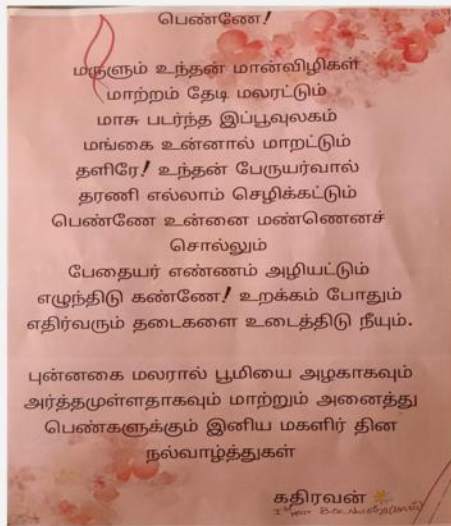 பெண்ணே!
மருளும் உந்தன் மான்விழிகள்
மாற்றம் தேடி மலரட்டும்
மாசு படர்ந்த இப்பூவுலகம்
மங்கை உன்னால் மாறட்டும்
தளிரே! உந்தன் பேருயர்வால்
தரணி எல்லாம் செழிக்கட்டும்
பெண்ணே உன்னை மண்ணெனச்
சொல்லும்
பேதையர் எண்ணம் அழியட்டும்
எழுந்திடு கண்ணே! உறக்கம் போதும்
எதிர்வரும் தடைகளை உடைத்திடு நீயும்.
புன்னகை மலரால் பூமியை அழகாகவும்
அர்த்தமுள்ளதாகவும் மாற்றும் அனைத்து
பெண்களுக்கும் இனிய மகளிர் தின
நல்வாழ்த்துகள்
கதிரவன்